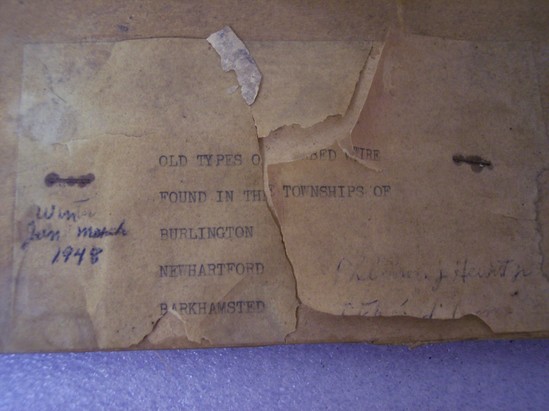 OLD TYPES O BED WIRE
FOUND IN THE TOWNSHIPS OF
BURLINGTON
NEWHARTFORD
BARKHAMSTED
Jan March
1948